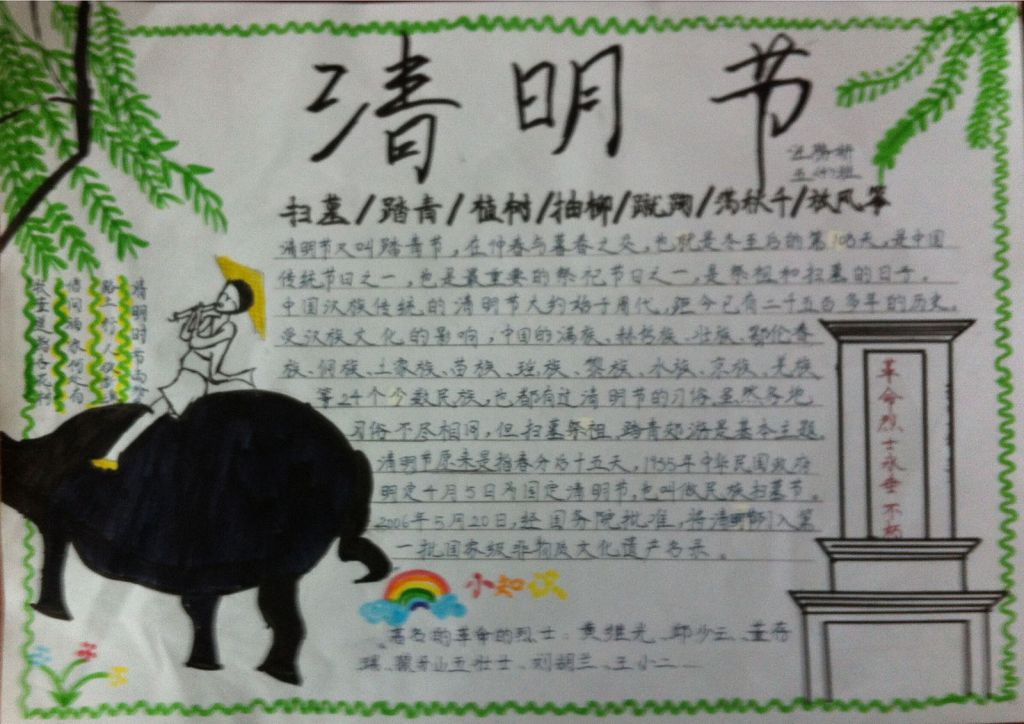 清明节
扫墓/踏青/植树/抽柳/蹴鞠/荡秋千/放风筝
清明节又叫踏青节，在仲春与暮春之交，也就是冬至后的第108天，是中国
传统节日之一，也是最重要的祭祀节日之一，是祭祖和扫墓的日子。
中国汉族传统的清明节大约始于周代，距今已有二千五百多年的历史。
受汉族文化的影响，中国的满族、赫哲族、壮族、鄂伦春
族、侗族、土家族、苗族、瑶族、黎族、水族、京族、羌族
等24个少数民族，也都有过清明节的习俗。虽然各地
习俗不尽相同，但扫墓祭祖、踏青郊游是基本主题。
清明节原来是指春分后十五天，1935年中华民国政府
明定4月5日为国定清明节，也叫做民族扫墓节。
2006年5月20日，经国务院批准，将清明节列入第
一批国家级非物质文化遗产名录。
清明时节雨
路上行人欲断
借问酒家何处有
牧童遥指杏花村
革命烈士永垂不朽
小知识
著名的革命的烈士：黄继光、邱少云、董存
瑞、狼牙山五壮士、刘胡兰、王小二……